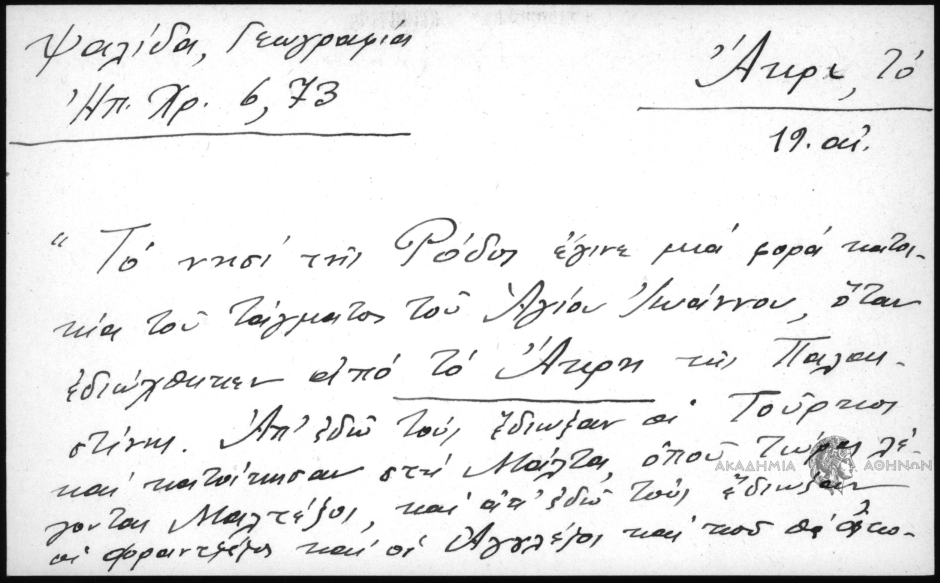 Ψαλίδα, Γεωγραφία
Ἠπ. Χρ. 6, 73
Ἄκρη, τό
19. αἰ.
“ Τό νησί τῆς Ρόδος ἔγινε μιά φορά κατοι-
κία τοῦ τάγματος τοῦ Ἁγίου Ἰωάννου, ὅταν
ἐδιώχθηκεν ἀπό τό Ἄκρη τῆς Παλαι-
στίνης. Ἀπ’ ἐδῶ τούς ἔδιωξαν οἱ Τοῦρκοι
καί κατοίκησαν στή Μάλτα, ὁποῦ τώρα λέ-
γονται Μαλτέζοι, καί ἀπ’ ἐδῶ τούς ἔδιωξαν
οἱ φραντζέζοι καί οἱ Ἀγγλέζοι καί ποῦ θά
ΑΚΑΔΗΜΙΑ ΑΘΗΝΩΝ